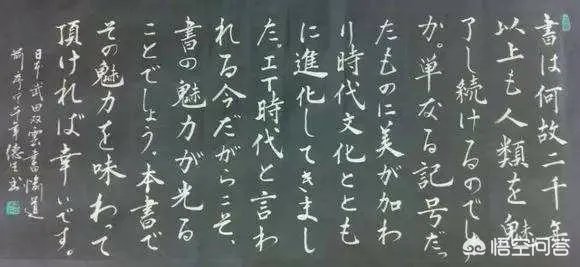 書は何故二千年
以上も人類を魅
了し続けるのでしょう
か。単なる記号だっ
たものに美が加わ
り時代文化ととも
に進化してきまし
た。IT時代と言わ
れる今だからこそ、
書の魅力が光る
ことでしょう。本書で
その魅力を味わって
頂ければ幸いです。
日本武田双雲書愉道
悟空问答